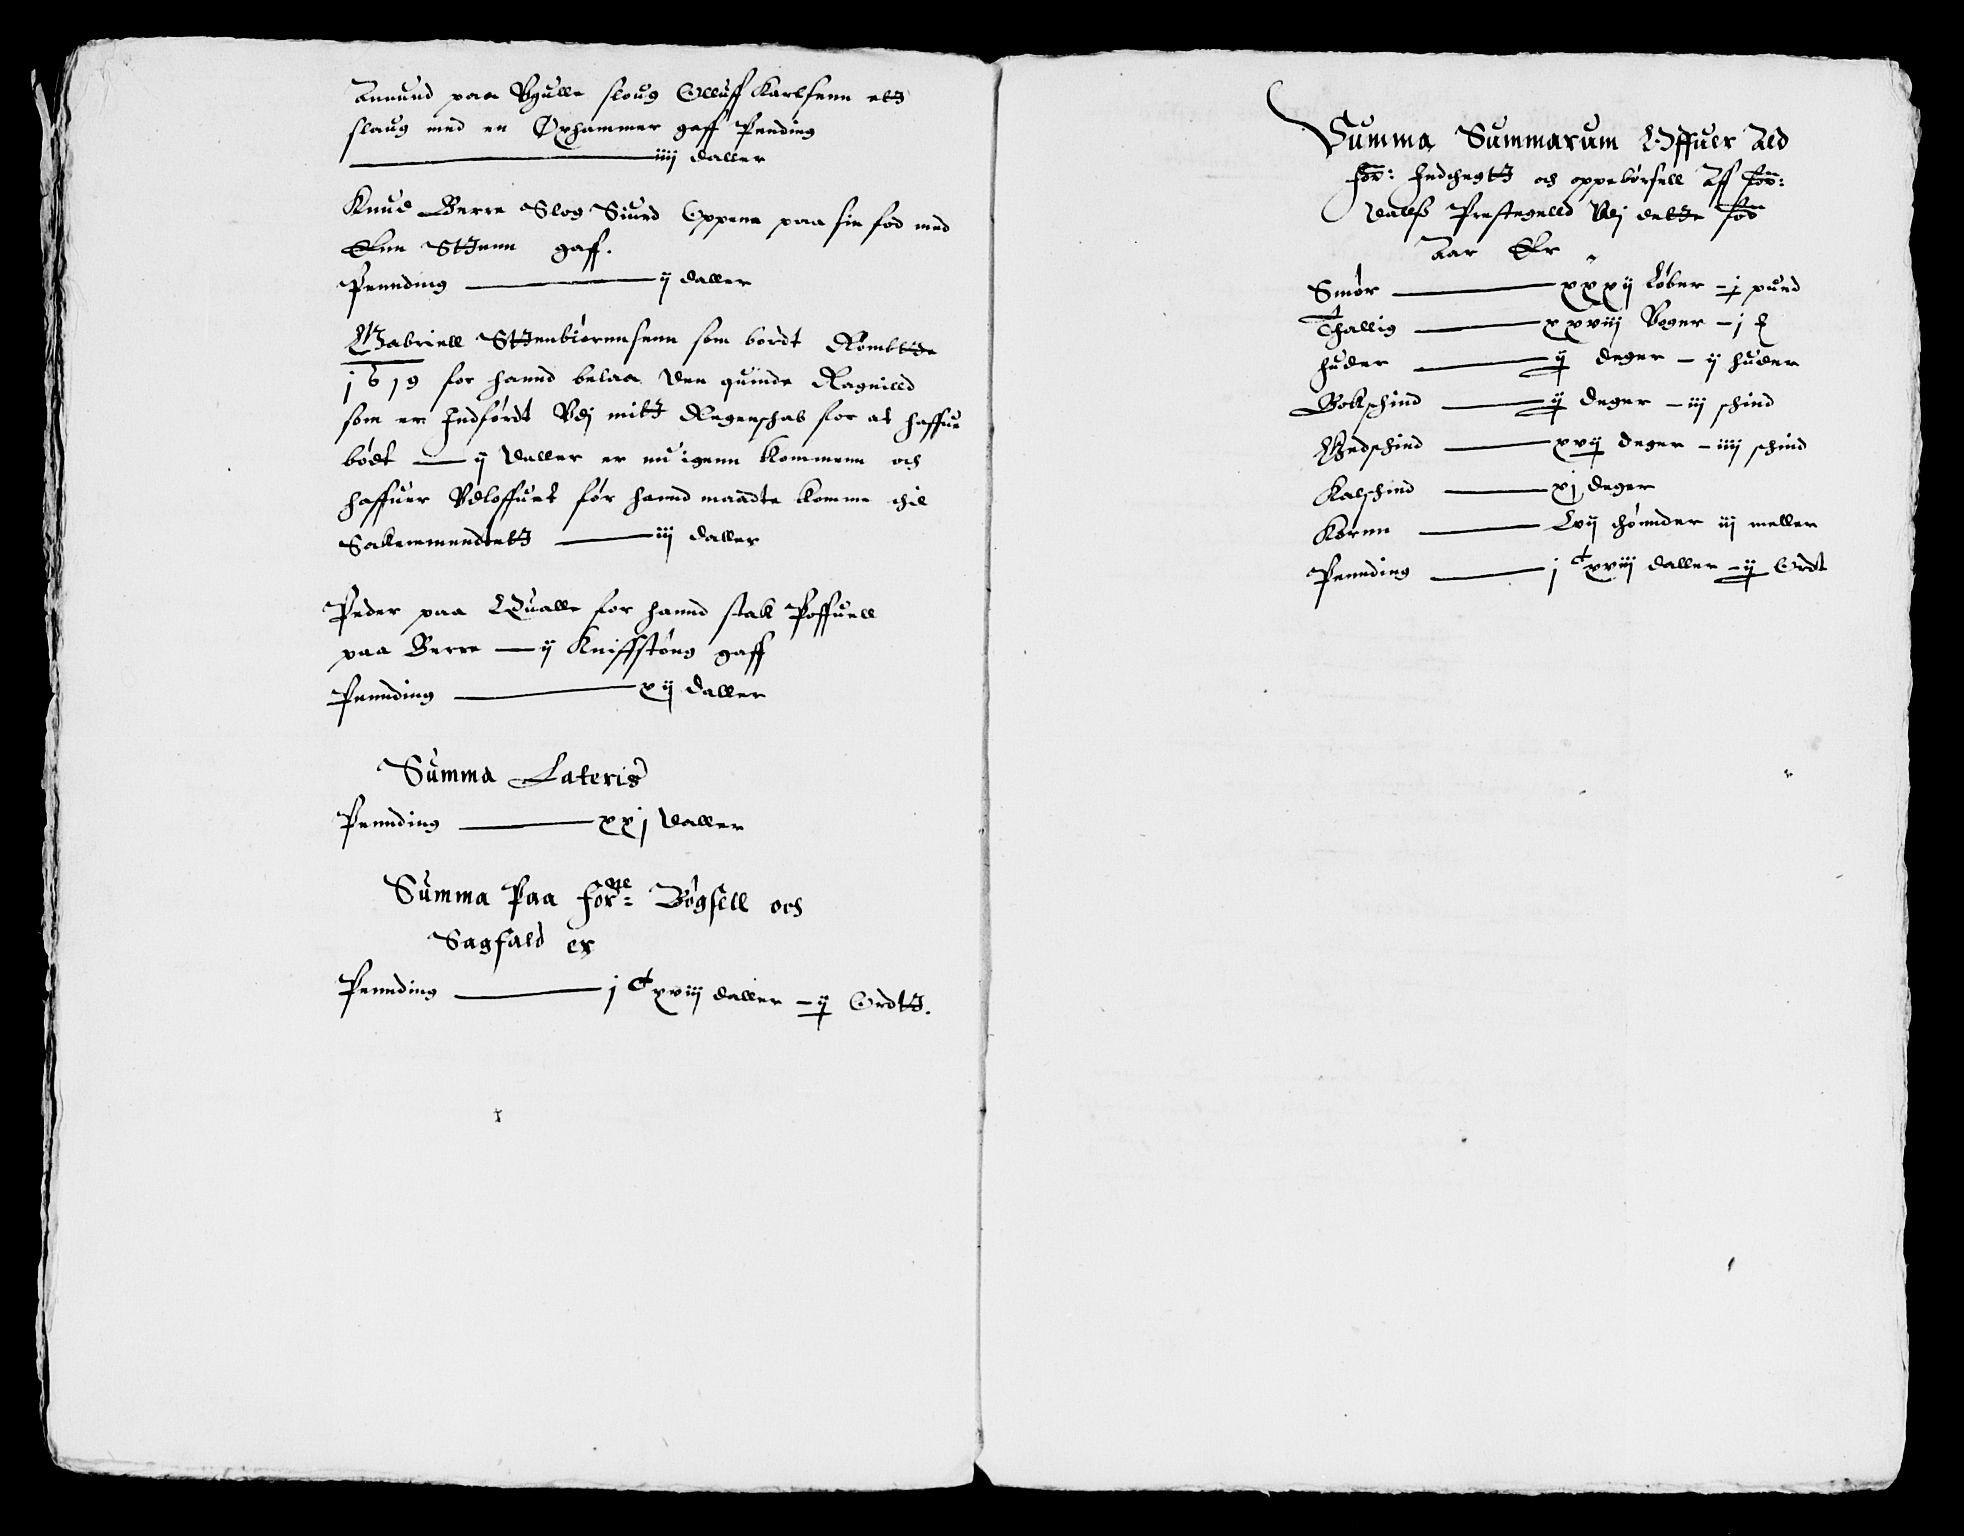 Amund paa Vgulle sloug Olluff Karlsenn ett
slaug med en Øxhammer gaff Pending
iiij daller
Knud Berre Slog Siurd Oppenn paa sin fod med
Enn Stenn gaff.
Pennding ij daller
Gabriell Stenbiørnsenn som bordt Rømbte
1619 for hannd belaa den quinde Ragnilld
som er Indførdt Vdj mitt Regenschab for at haffue
bødt ij daller er nu igenn kommenn och
haffuer Vdloffuet før hannd maadte komme thil
Sakrementett iij daller
Peder paa Qualle for hannd stak Poffuell
paa Berre ij Kniffstøng gaff
Pennding xij daller
Summa Lateris
Pennding xxj daller
Summa Paa forne: Bøgsell och
Sagfald er
Pennding j C xviij daller ij Ordt.
Summa Summarum Offuer Ald
for: Indthegtt och oppebørsell Aff for:
dalls Prestegelld Vdj dette for
Aar Er
Smør xxxij Løber j pund
Thallig xxviij Voger j
huder ij deger ij huder
Bokschind ij deger iij schind
Gedschind xvij deger iiij schind
Kalschind xj deger
Kornn Lvij thønder iij meller
Pennding j C xviij daller ij Ordt